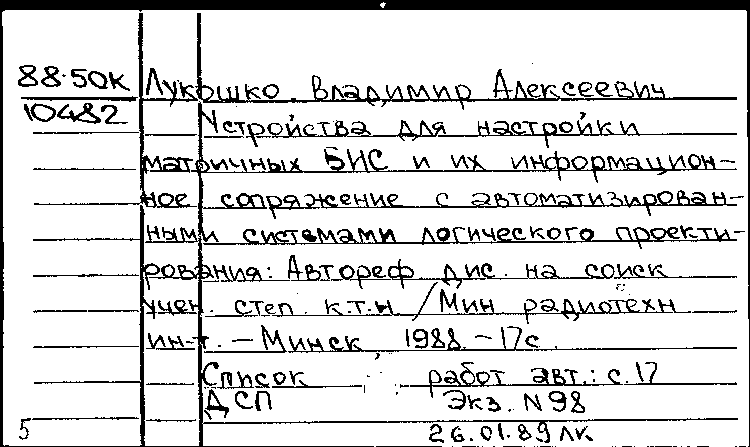 88-50К Лукошко Владимир Алексеевич
10482 Устройства для настройки
матричных БИС и их информацион-
ное сопряжение с автоматизирован-
ными системами логического проекти-
рования: Автореф дис. на соиск
учен. степ. к.т.н / Мин радиотехн
ин-т. – Минск, 1988. – 17с.
Список работ авт.: с. 17
ДСП Экз. N 98
5 26.01.89 ЛК